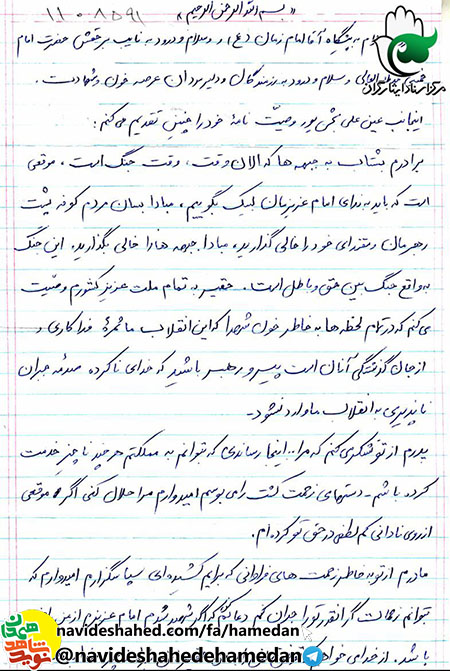 « بسم الله الرحمن الرحیم »
11085591
سلام به پیشگاه آقا امام زمان (عج) و سلام و درود به نایب برحقش حضرت امام
خمینی و سلام و درود به رزمندگان و دلیرمردان عرصه خون و شهادت.
مرکز اسناد ایثارگران
اینجانب عین علی نجمی پور وصیت نامهٔ خود را چنین تقدیم می‌کنم:
برادرم بشتاب به جبهه ها که الان وقت، وقت جنگ است، موقعی
است که باید به ندای امام عزیزمان لبیک بگوییم، مبادا بسان مردم کوفه پشت
رهبرمان و مقتدای خود را خالی گذارید، مبادا جبهه ها را خالی بگذارید. این جنگ
به واقع جنگ بین حق و باطل است. حقیر به تمام ملت عزیز کشورم وصیت
می کنم که در تمام لحظه ها به خاطر خون شهدا که این انقلاب ما ثمرهٔ فداکاری و
از جان گذشتگی آنان است پیرو رهبر باشید که خدای ناکرده صدمه جبران
ناپذیری به انقلاب ما وارد نشود.
پدرم از تو تشکر می کنم که مرا به اینجا رساندی که توانم به مملکتم هر چند ناچیز خدمت
کرده باشم - دستهای زحمت کشت را می بوسم امیدوارم مرا حلال کنی اگر موقعی
از روی نادانی کم لطفی در حق تو کرده ام.
مادرم از تو به خاطر زحمت های فراوانی که برایم کشیده ای سپاسگزارم امیدوارم که
بتوانم زحمات گرانقدر تو را جبران کنم دعا کن که اگر شهید شدم امام عزیزم از من راضی
باشد. از خدای
شاهد
navideshahed.com/fa/hamedan
@navideshahedehamedan